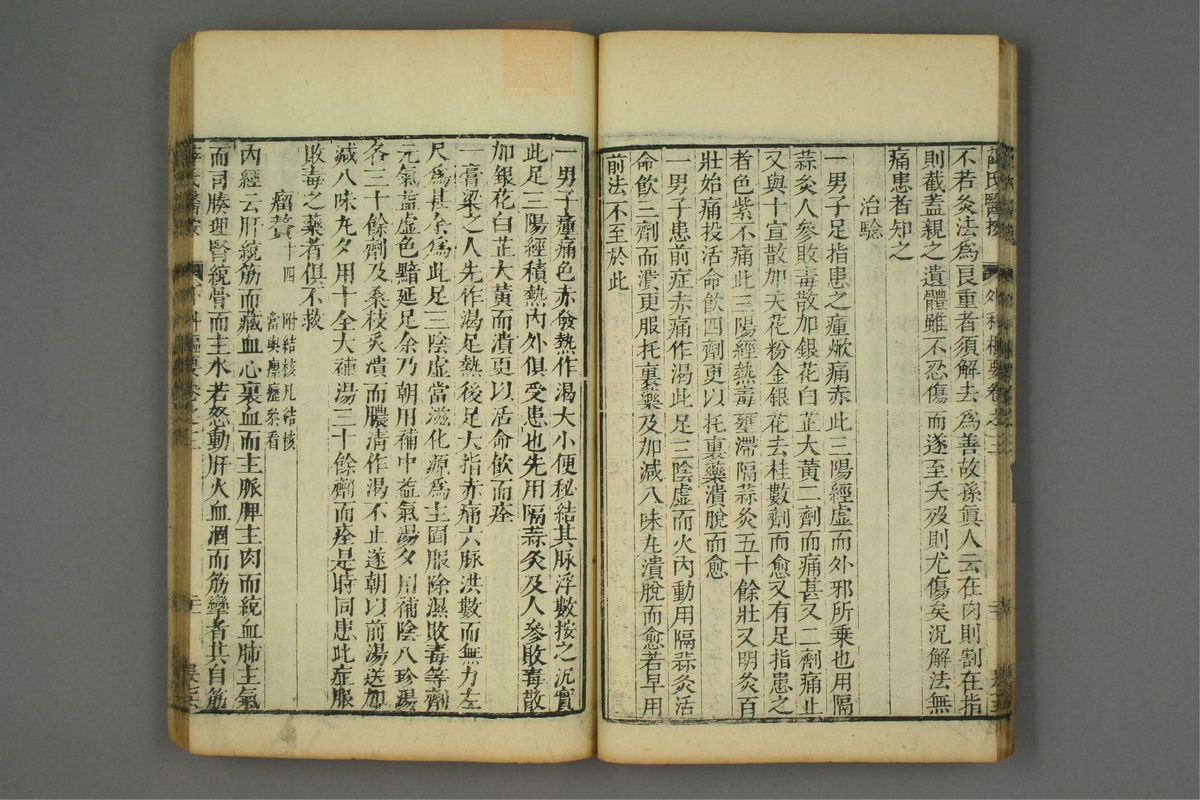 薛氏醫按 外科樞要卷之三
不若灸法為良重者須解去為善故孫眞人云在肉則割在指
則截蓋親之遺體雖不忍傷而遂至夭歿則尤傷矣况解法無
痛患者知之
治驗
一男子足指患之瘇焮痛赤此三陽經虛而外邪所乗也用隔
蒜灸人參敗毒散加銀花白芷大黃二劑而痛甚又二劑痛止
又與十宣散加天花粉金銀花去桂數劑而愈又有足指患之
者色紫不痛此三陽經熱毒壅滯隔蒜灸五十餘壯又明灸百
壯始痛投活命飲四劑更以托裏藥潰脫而愈
一男子患前症赤痛作渴此足三陰虛而火内動用隔蒜灸活
命飲三劑而潰更服托裏藥及加減八味丸潰脫而愈若早用
前法不至於此
一男子瘇痛色赤發熱作渴大小便秘結其脉浮數按之沉實
此足三陽經積熱内外俱受患也先用隔蒜灸及人參敗毒散
加銀花白芷大黃而潰更以活命飲而痊
一膏粱之人先作渴足熱後足大指赤痛六脉洪數而無力左
尺為甚余為此足三陰虛當滋化源為主固服除濕敗毒等劑
元氣益虛色黯延足余乃朝用補中益氣湯夕用補陰八珍湯
各三十餘劑及桑枝灸潰而膿清作渴不止遂朝以前湯送加
減八味丸夕用十全大補湯三十餘劑而痊是時同患此症服
敗毒之藥者俱不救
瘤贅十四 附結核凡結核
當與瘰癧糸看
内經云肝統筋而藏血心裏血而主脈脾主肉而統血肺主氣
而司腠理腎統骨而主水若怒動肝火血涸而筋攣者其自筋
薛氏醫按 外科樞要卷之三